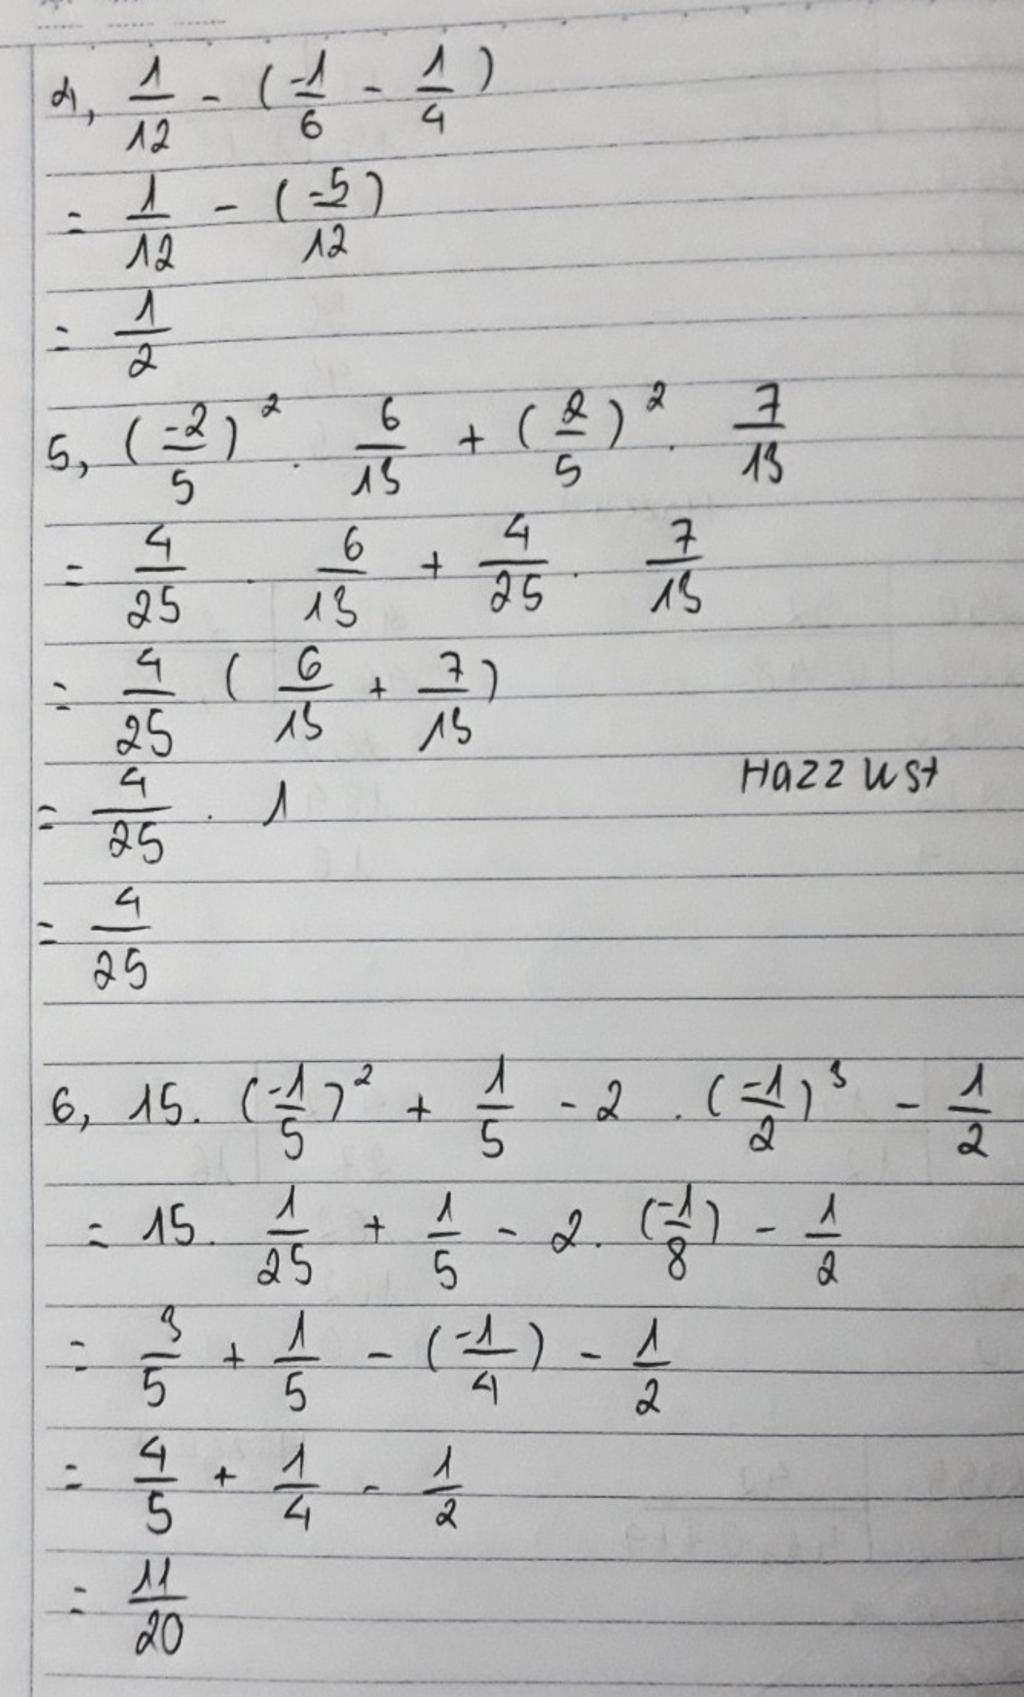 4, 1/12 - (-1/6 - 1/4)
= 1/12 - (-5/12)
= 1/2
5, (-2/5)² . 6/13 + (2/5)² . 7/13
= 4/25 . 6/13 + 4/25 . 7/13
= 4/25 (6/13 + 7/13)
Hazz Ust
= 4/25 . 1
= 4/25
6, 15. (-1/5)² + 1/5 - 2 . (-1/2)³ - 1/2
= 15. 1/25 + 1/5 - 2. (-1/8) - 1/2
= 3/5 + 1/5 - (-1/4) - 1/2
= 4/5 + 1/4 - 1/2
= 11/20